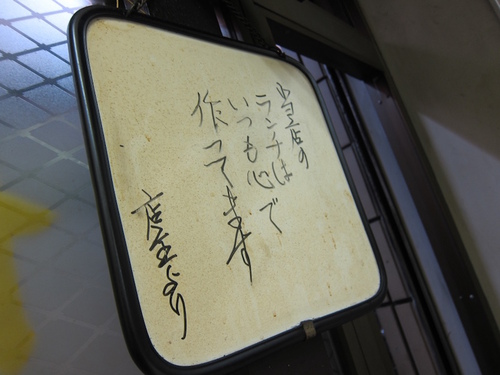 当店の
ランチは
いつも心で
作ってます
店主より